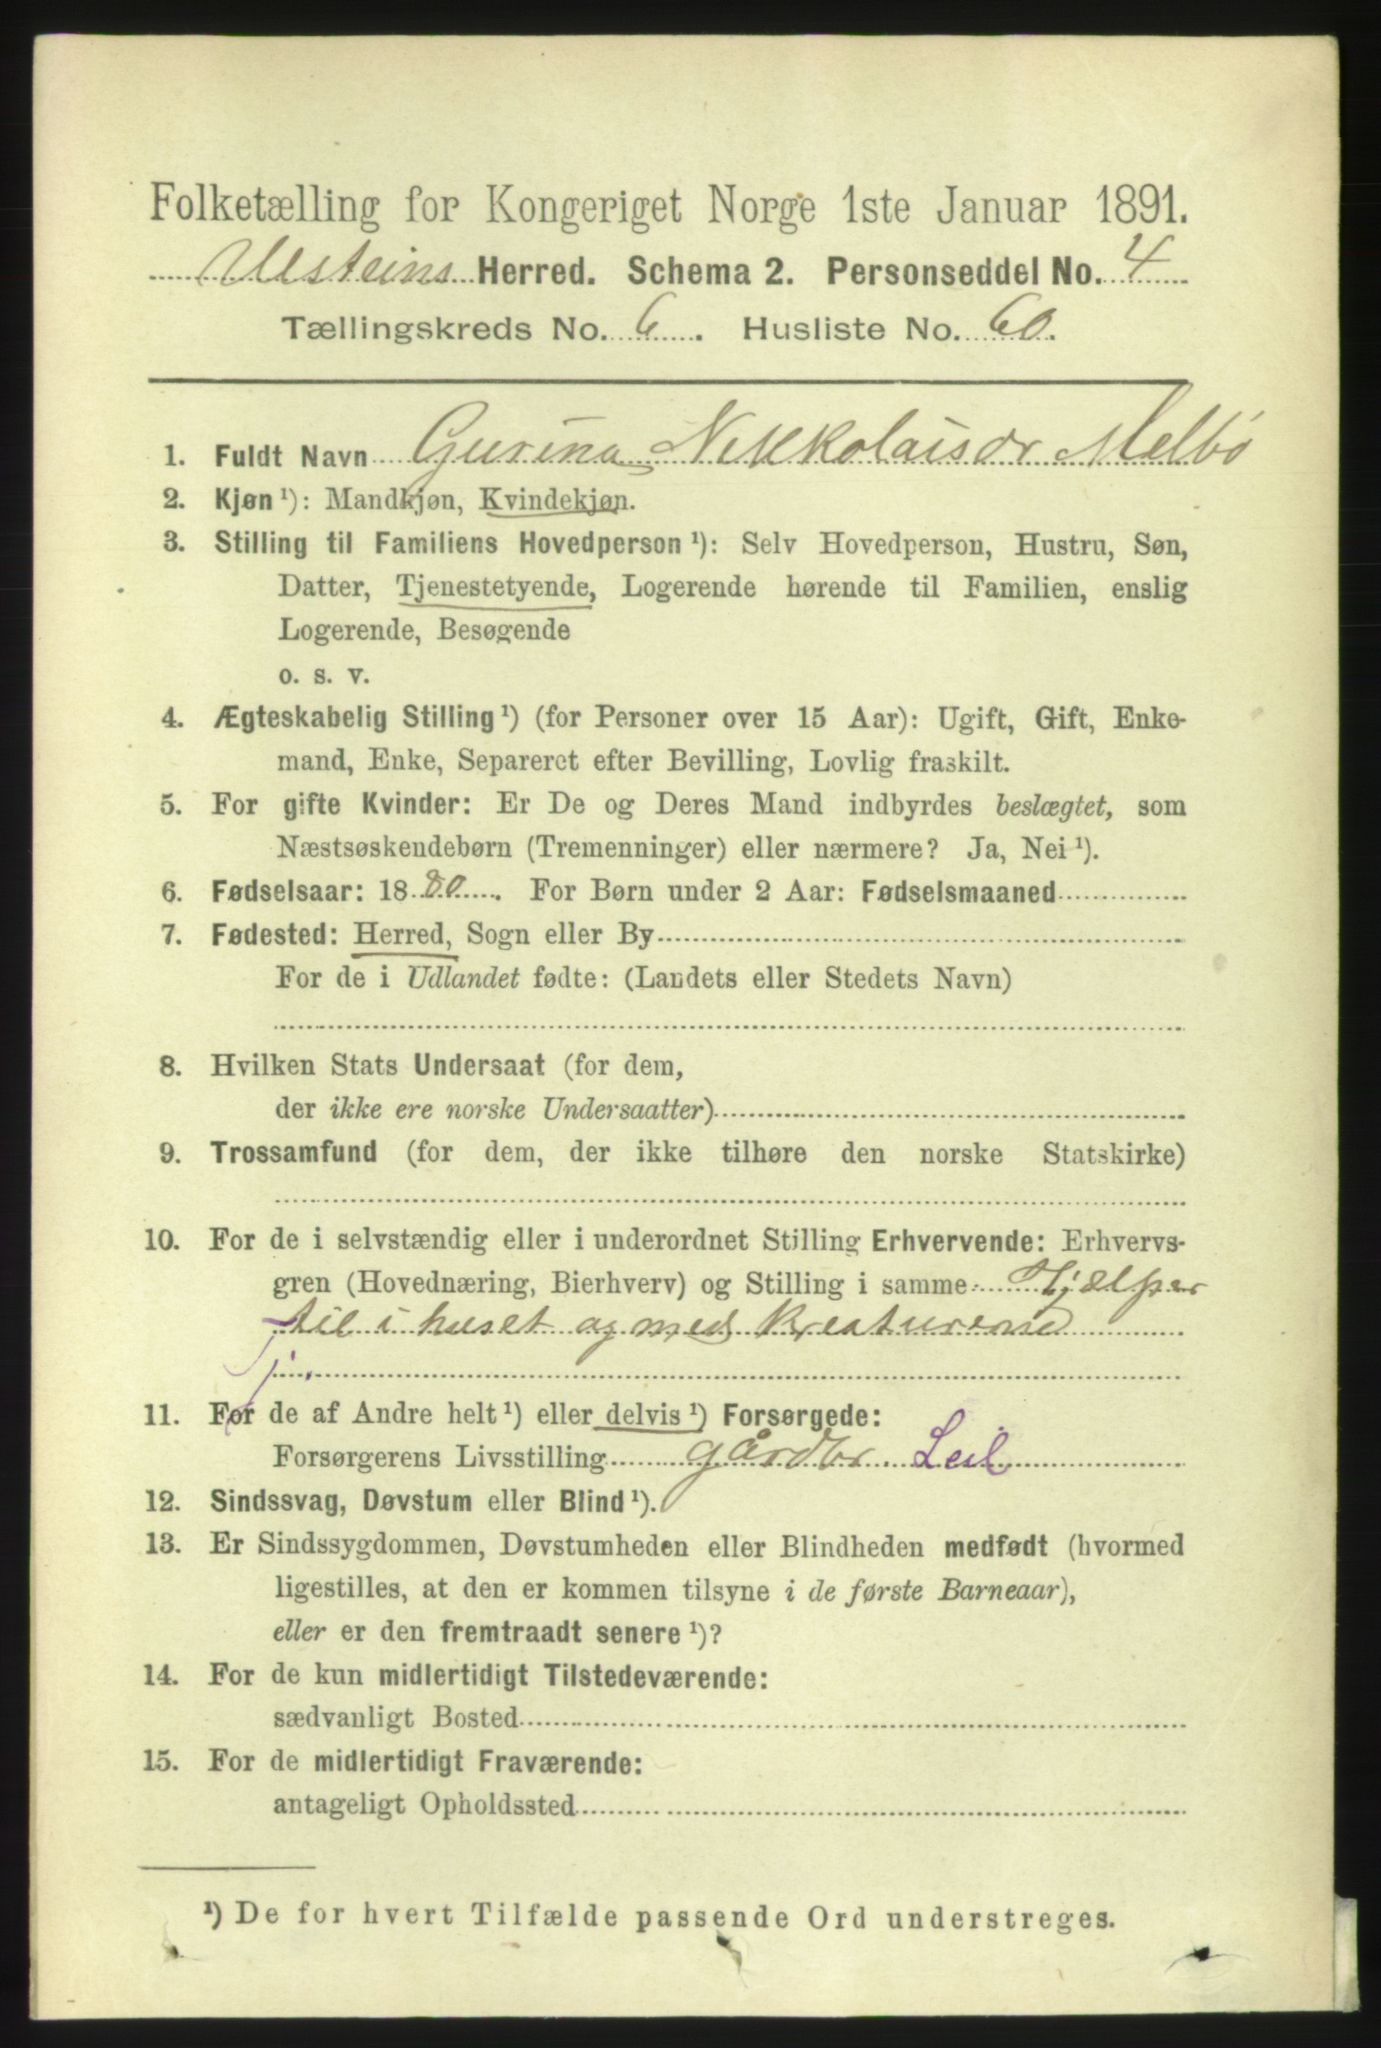 Folketælling for Kongeriget Norge 1ste Januar 1891.
Ulsteins Herred. Schema 2. Personseddel No. 4
Tællingskreds No. 6. Husliste No. 60.
1. Fuldt Navn Gurina Nikkolaisdr Melbö
2. Kjøn¹): Mandkjøn, Kvindekjøn.
3. Stilling til Familiens Hovedperson¹): Selv Hovedperson, Hustru, Søn,
Datter, Tjenestetyende, Logerende hørende til Familien, enslig
Logerende, Besøgende
o. s. v.
4. Ægteskabelig Stilling¹) (for Personer over 15 Aar): Ugift, Gift, Enke-
mand, Enke, Separeret efter Bevilling, Lovlig fraskilt.
5. For gifte Kvinder: Er De og Deres Mand indbyrdes beslægtet, som
Næstsøskendebørn (Tremenninger) eller nærmere? Ja, Nei¹).
6. Fødselsaar: 1880. For Børn under 2 Aar: Fødselsmaaned
7. Fødested: Herred, Sogn eller By
For de i Udlandet fødte: (Landets eller Stedets Navn)
8. Hvilken Stats Undersaat (for dem,
der ikke ere norske Undersaatter)
9. Trossamfund (for dem, der ikke tilhøre den norske Statskirke)
10. For de i selvstændig eller i underordnet Stilling Erhvervende: Erhvervs-
gren (Hovednæring, Bierhverv) og Stilling i samme Hjælper
til i huset og med kreaturene
11. For de af Andre helt¹) eller delvis¹) Forsørgede:
Forsørgerens Livsstilling gårdbr. Leil
12. Sindssvag, Døvstum eller Blind¹).
13. Er Sindssygdommen, Døvstumheden eller Blindheden medfødt (hvormed
ligestilles, at den er kommen tilsyne i de første Barneaar),
eller er den fremtraadt senere¹)?
14. For de kun midlertidigt Tilstedeværende:
sædvanligt Bosted
15. For de midlertidigt Fraværende:
antageligt Opholdssted
¹) De for hvert Tilfælde passende Ord understreges.